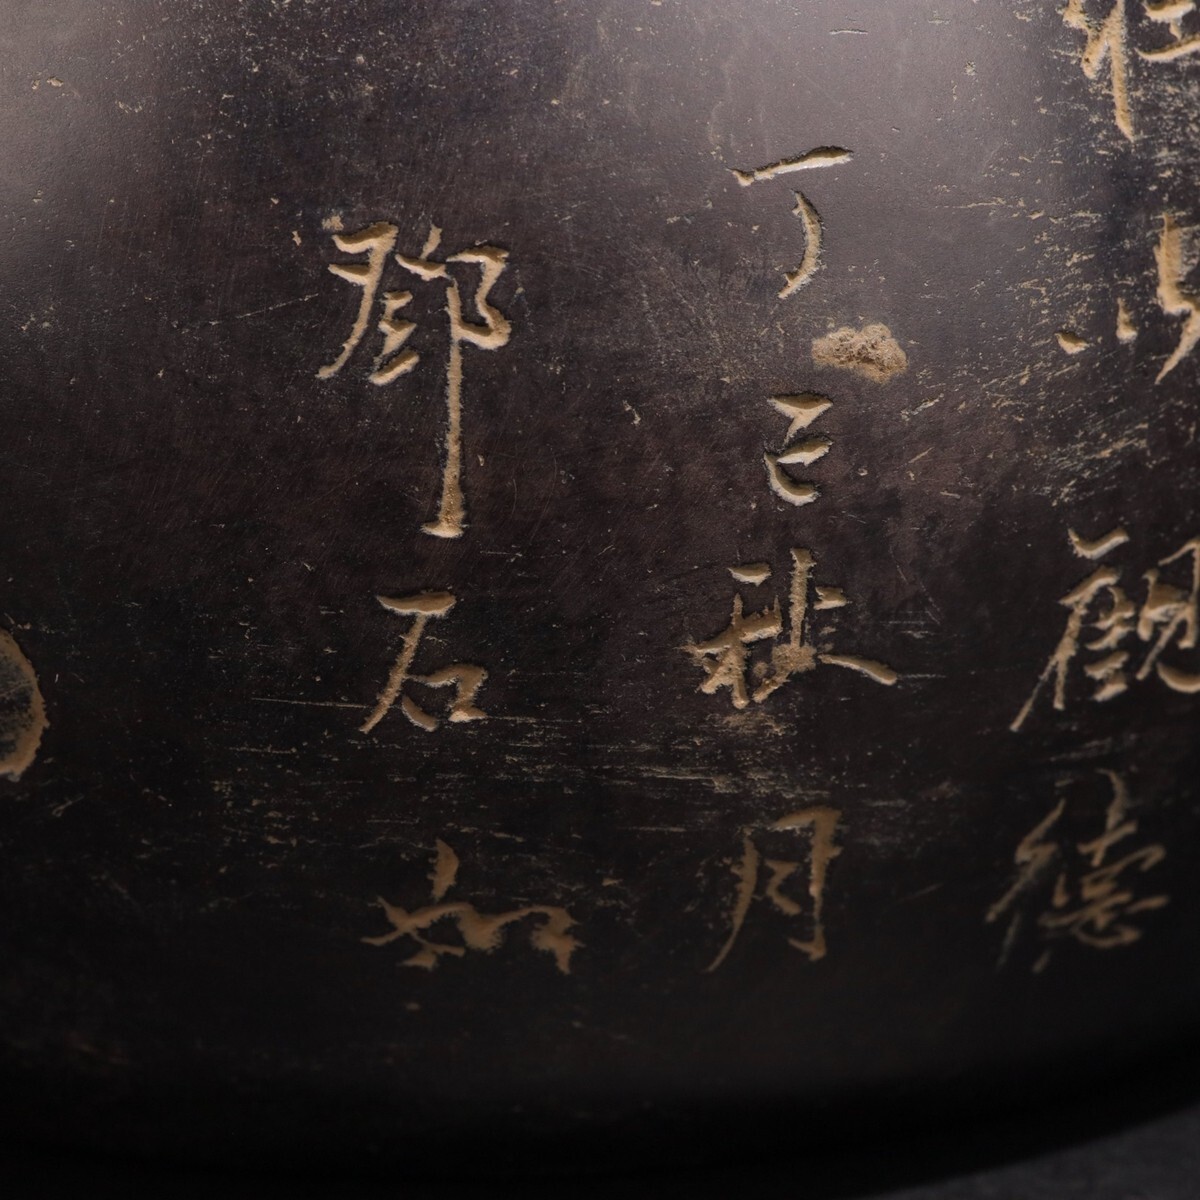 觀德
丁巳秋月
鄧石如